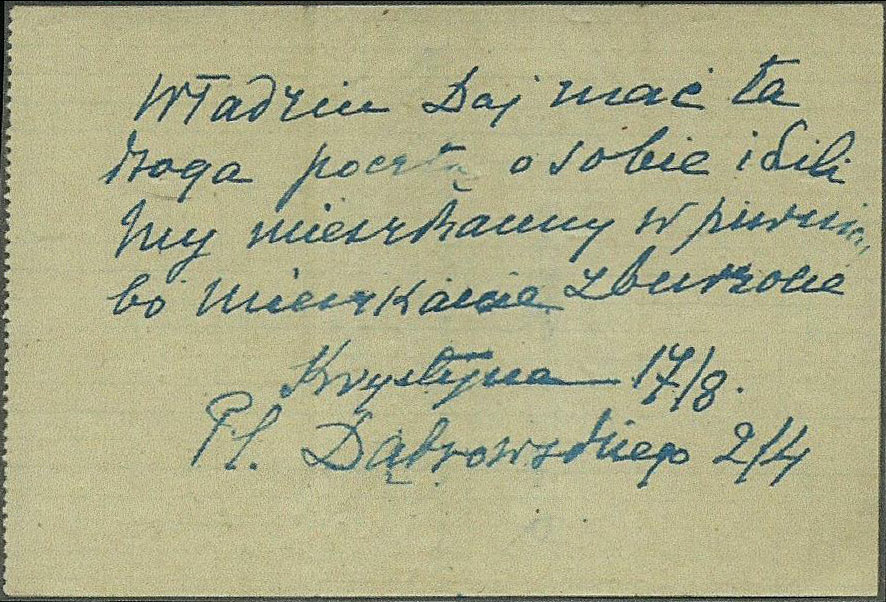 Władziu Daj mać tą
drogą pocztą o sobie i Lili
my mieszkamy w piwnicy
bo mieszkanie zburzone
Krystyna 17/8.
Pl. Dąbrowskiego 2/4